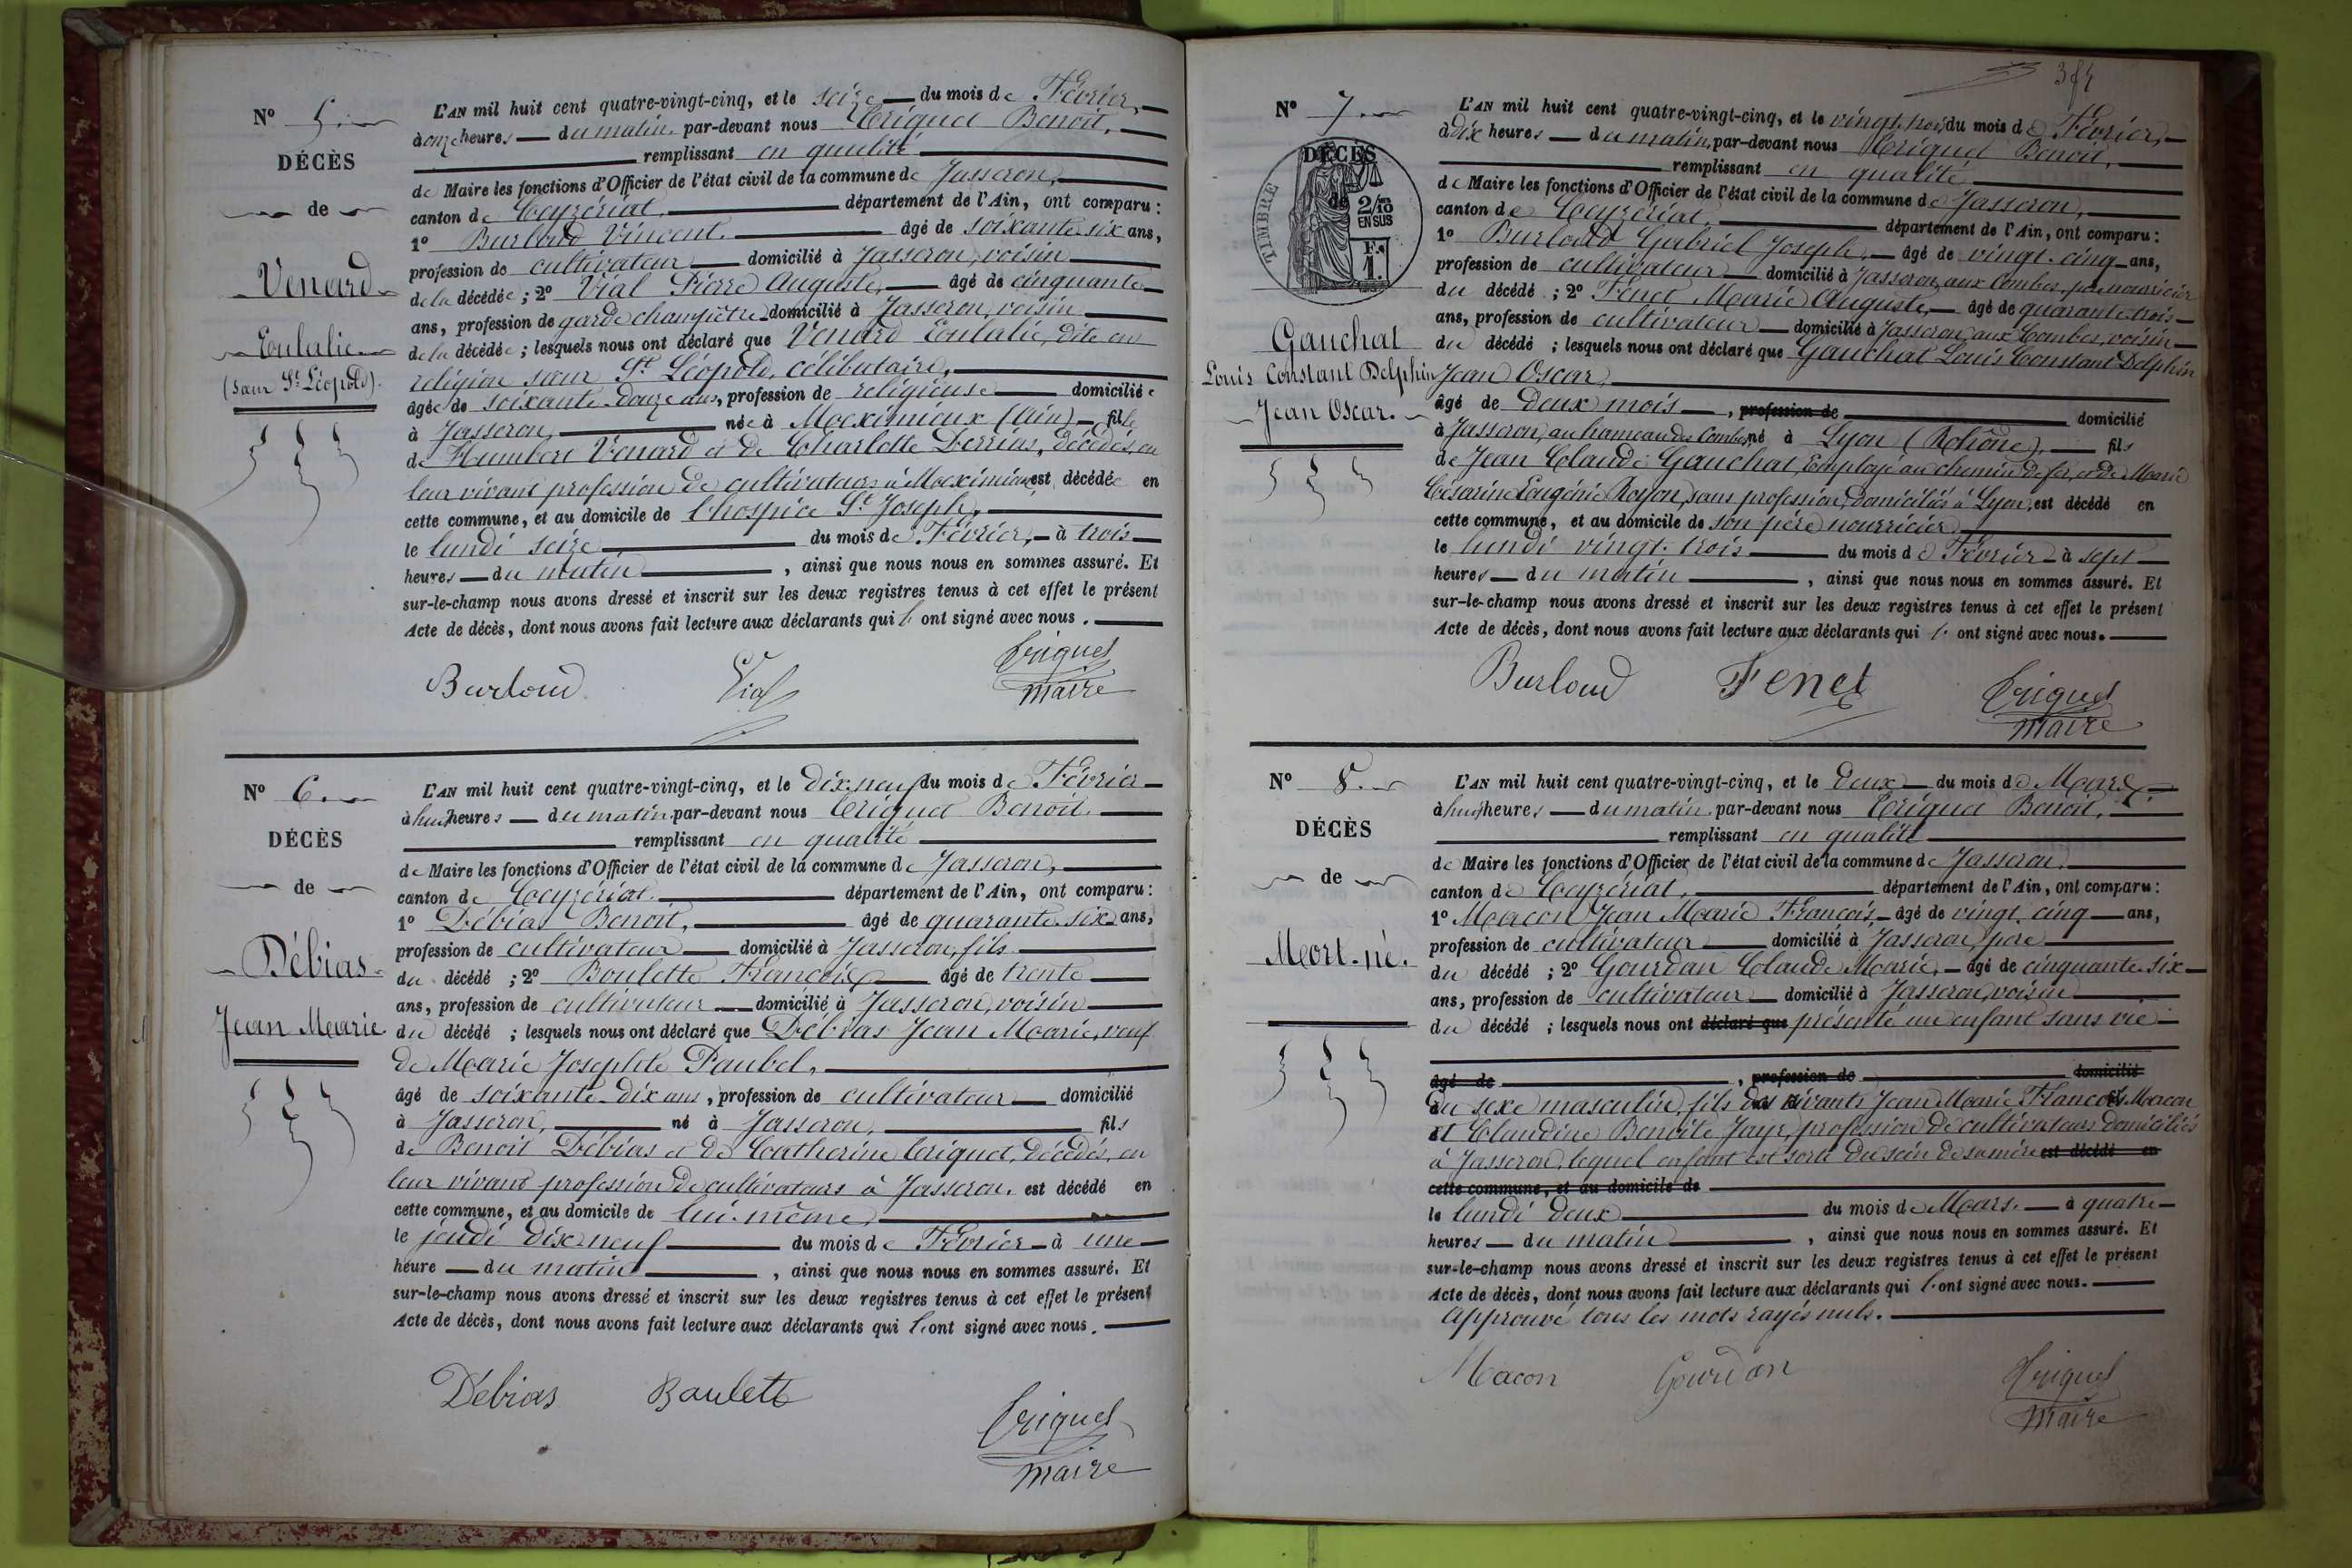 Nº 5.
DÉCÈS
de
Venard
Eulalie
(sœur St Léopold).
L'AN mil huit cent quatre-vingt-cinq, et le seize du mois de Février,
à onze heures du matin, par-devant nous Criquet Benoit,
remplissant en qualité
de Maire les fonctions d'Officier de l'état civil de la commune de Jasseron,
canton de Ceyzériat, département de l'Ain, ont comparu :
1º Burloud Vincent, âgé de soixante-six ans,
profession de cultivateur domicilié à Jasseron, voisin
de la décédée ; 2º Vial Pierre Auguste, âgé de cinquante
ans, profession de garde champêtre domicilié à Jasseron, voisin
de la décédée ; lesquels nous ont déclaré que Venard Eulalie, dite en
religion sœur St Léopold, célibataire,
âgée de soixante-douze ans, profession de religieuse domiciliée
à Jasseron, née à Mexímieux (Ain) fille
de Humbert Venard et de Charlotte Derrias, décédés, en
leur vivant profession de cultivateurs à Meximieux, est décédée en
cette commune, et au domicile de l'hospice St Joseph,
le lundi seize du mois de Février, à trois
heures du matin, ainsi que nous nous en sommes assuré. Et
sur-le-champ nous avons dressé et inscrit sur les deux registres tenus à cet effet le présent
Acte de décès, dont nous avons fait lecture aux déclarants qui l' ont signé avec nous.
Burloud Vial Criquet
maire
Nº 6.
DÉCÈS
de
Débias
Jean Marie
L'AN mil huit cent quatre-vingt-cinq, et le dix-neuf du mois de Février
à huit heures du matin par-devant nous Criquet Benoit,
remplissant en qualité
de Maire les fonctions d'Officier de l'état civil de la commune de Jasseron,
canton de Ceyzériat, département de l'Ain, ont comparu :
1º Débias Benoit, âgé de quarante-six ans,
profession de cultivateur domicilié à Jasseron, fils
du décédé ; 2º Boulette François, âgé de trente
ans, profession de cultivateur domicilié à Jasseron, voisin
du décédé ; lesquels nous ont déclaré que Débias Jean Marie, veuf
de Marie Josephte Paubel,
âgé de soixante-dix ans, profession de cultivateur domicilié
à Jasseron, né à Jasseron, fils
de Benoit Débias et de Catherine Criquet, décédés, en
leur vivant profession de cultivateurs à Jasseron, est décédé en
cette commune, et au domicile de lui-même,
le jeudi dix-neuf du mois de Février à une
heure du matin, ainsi que nous nous en sommes assuré. Et
sur-le-champ nous avons dressé et inscrit sur les deux registres tenus à cet effet le présent
Acte de décès, dont nous avons fait lecture aux déclarants qui l'ont signé avec nous.
Débias Boulette
Criquet
maire
384
Nº 7.
DÉCÈS
de
TIMBRE
2/10
EN SUS
F.
1.
Gauchat
Louis Constant Delphin
Jean Oscar.
L'AN mil huit cent quatre-vingt-cinq, et le vingt-trois du mois de Février,
à dix heures du matin, par-devant nous Criquet Benoit,
remplissant en qualité
de Maire les fonctions d'Officier de l'état civil de la commune de Jasseron,
canton de Ceyzériat, département de l'Ain, ont comparu :
1º Burloud Gabriel Joseph, âgé de vingt-cinq ans,
profession de cultivateur domicilié à Jasseron, aux Combes, père nourricier
du décédé ; 2º Fenet Marie Auguste, âgé de quarante-trois
ans, profession de cultivateur domicilié à Jasseron, aux Combes, voisin
du décédé ; lesquels nous ont déclaré que Gauchat Louis Constant Delphin
Jean Oscar,
âgé de deux mois, profession de domicilié
à Jasseron, au hameau des Combes, né à Lyon (Rhône), fils
de Jean Claude Gauchat, Employé au chemin de fer, et de Marie
Césarine Eugénie Royon, sans profession, domiciliés à Lyon, est décédé en
cette commune, et au domicile de son père nourricier,
le lundi vingt-trois du mois de Février à sept
heures du matin, ainsi que nous nous en sommes assuré. Et
sur-le-champ nous avons dressé et inscrit sur les deux registres tenus à cet effet le présent
Acte de décès, dont nous avons fait lecture aux déclarants qui l' ont signé avec nous.
Burloud Fenet Criquet
maire
Nº 8.
DÉCÈS
de
Mort-né.
L'AN mil huit cent quatre-vingt-cinq, et le deux du mois de Mars,
à huit heures du matin, par-devant nous Criquet Benoit,
remplissant en qualité
de Maire les fonctions d'Officier de l'état civil de la commune de Jasseron,
canton de Ceyzériat, département de l'Ain, ont comparu :
1º Macon Jean Marie François, âgé de vingt-cinq ans,
profession de cultivateur domicilié à Jasseron, père
du décédé ; 2º Gourdan Claude Marie, âgé de cinquante-six
ans, profession de cultivateur domicilié à Jasseron, voisin
du décédé ; lesquels nous ont déclaré que présenté un enfant sans vie
âgé de , profession de domicilié
du sexe masculin, fils des vivants Jean Marie François Macon
et Claudine Benoite Jayr, profession de cultivateurs domiciliés
à Jasseron, lequel enfant est sorti du sein de sa mère est décédé en
cette commune, et au domicile de
le lundi deux du mois de Mars, à quatre
heures du matin, ainsi que nous nous en sommes assuré. Et
sur-le-champ nous avons dressé et inscrit sur les deux registres tenus à cet effet le présent
Acte de décès, dont nous avons fait lecture aux déclarants qui l'ont signé avec nous.
Approuvé tous les mots rayés nuls.
Macon Gourdan Criquet
maire